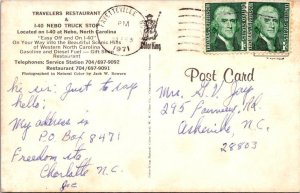 TRAVELERS RESTAURANT
&
I-40 NEBO TRUCK STOP
Located on I-40 at Nebo, North Carolina
"Easy Off and On I-40"
On Your Way into the Beautiful Scenic Hills
of Western North Carolina
Gasoline and Diesel Fuel -- Gift Shop
Restaurant
Telephones: Service Station 704/697-9092
Restaurant 704/697-9091
Photographed in Natural Color by Jack W. Bowers
PM
1971
Post Card
hi sir: Just to say
hello;
My address is
P O Box 8471
Freedom sta
Charlotte N.C.
Joe
Mrs. G.V. Joyce
295
Asheville, N.C.
28803